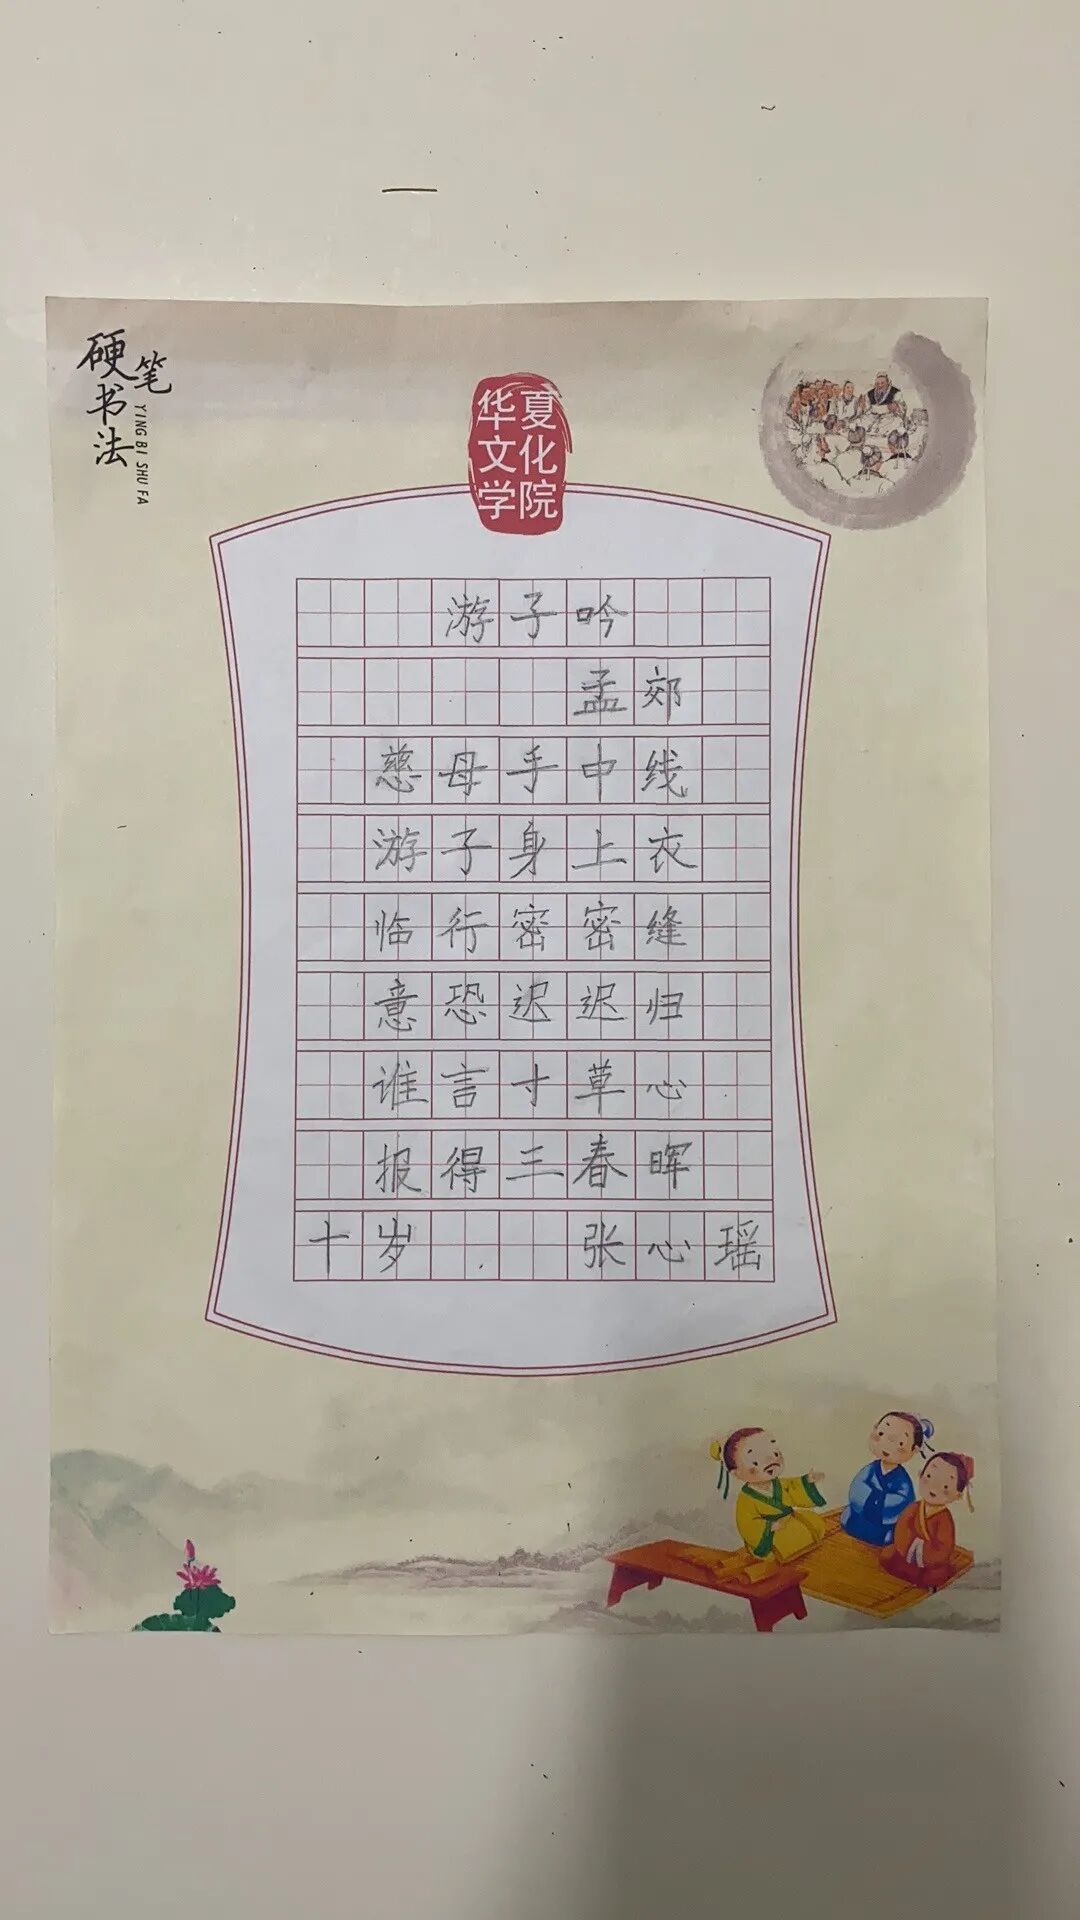 硬笔书法
YING BI SHU FA
华夏文化学院
游子吟
孟郊
慈母手中线
游子身上衣
临行密密缝
意恐迟迟归
谁言寸草心
报得三春晖
十岁 张心瑶